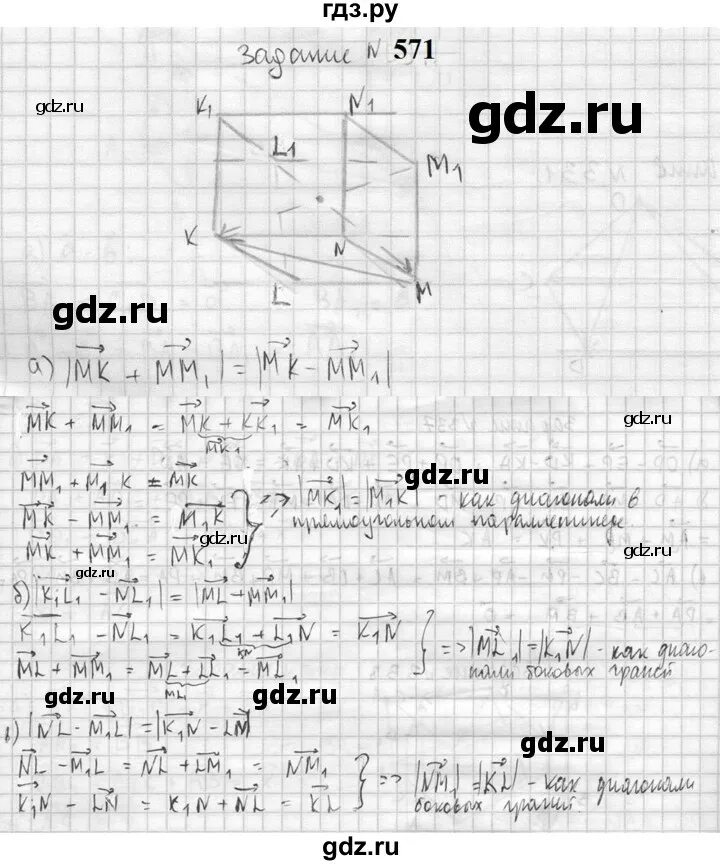 гдз.ру
задание N 571
gdz.ru
gdz.ru
K₁ N₁
L₁
M₁
K N
L M
gdz.ru
gdz.ru
а) |MK + MM₁| = |MK - MM₁|
gdz.ru
MK + MM₁ = MK + KK₁ = MK₁
MK₁
MM₁ + M₁K = MK
MK - MM₁ = M₁K
MK + MM₁ = MK₁
} => |MK₁| = |M₁K| - как диагонали в
прямоугольном параллепипеде.
gdz.ru
gdz.ru
gdz.ru
б) |K₁L₁ - NL₁| = |ML + MM₁|
K₁L₁ - NL₁ = K₁L₁ + L₁N = K₁N
KN
ML + MM₁ = ML + LL₁ = ML₁
ML₁
} => |ML₁| = |K₁N| - как диаго-
нали боковых граней
gdz.ru
gdz.ru
в) |NL - M₁L| = |K₁N - LN|
NL - M₁L = NL + LM₁ = NM₁
K₁N - LN = K₁N + NL = KL
} => |NM₁| = |KL| - как диагонали
боковых граней.
gdz.ru
gdz.ru
gdz.ru